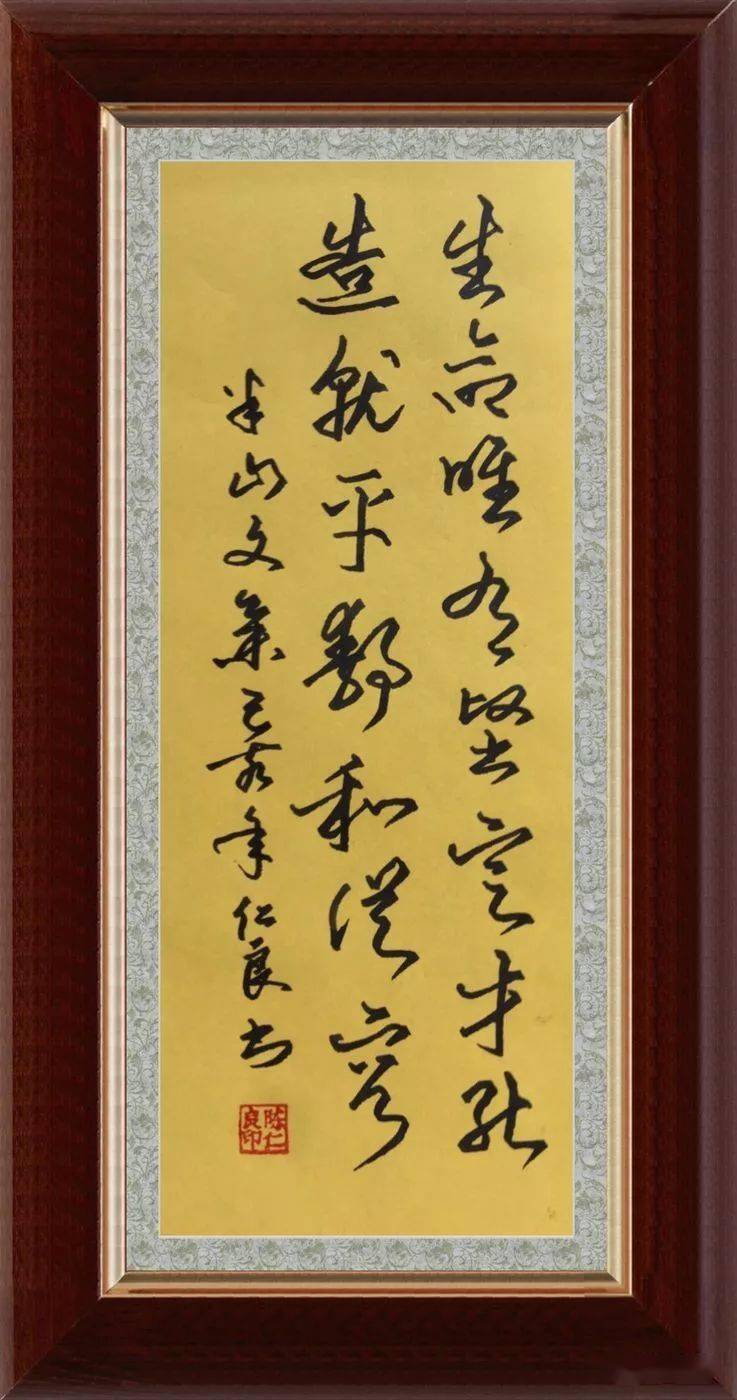 生命唯有坚定才能
造就平静和从容
半山文集己亥年仁良书
陈仁良印